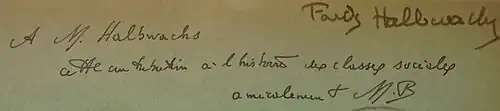 Fonds Halbwachs
A M. Halbwachs
cette contribution à l'histoire des classes sociales
amicalement M.B